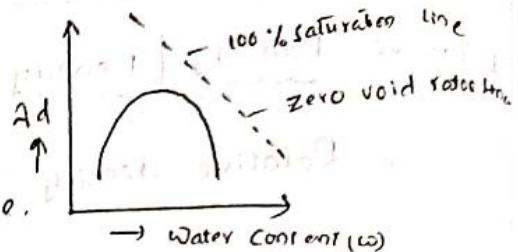 100% saturation line
zero void ratio line
λd
↑
0.
→ water content (w)